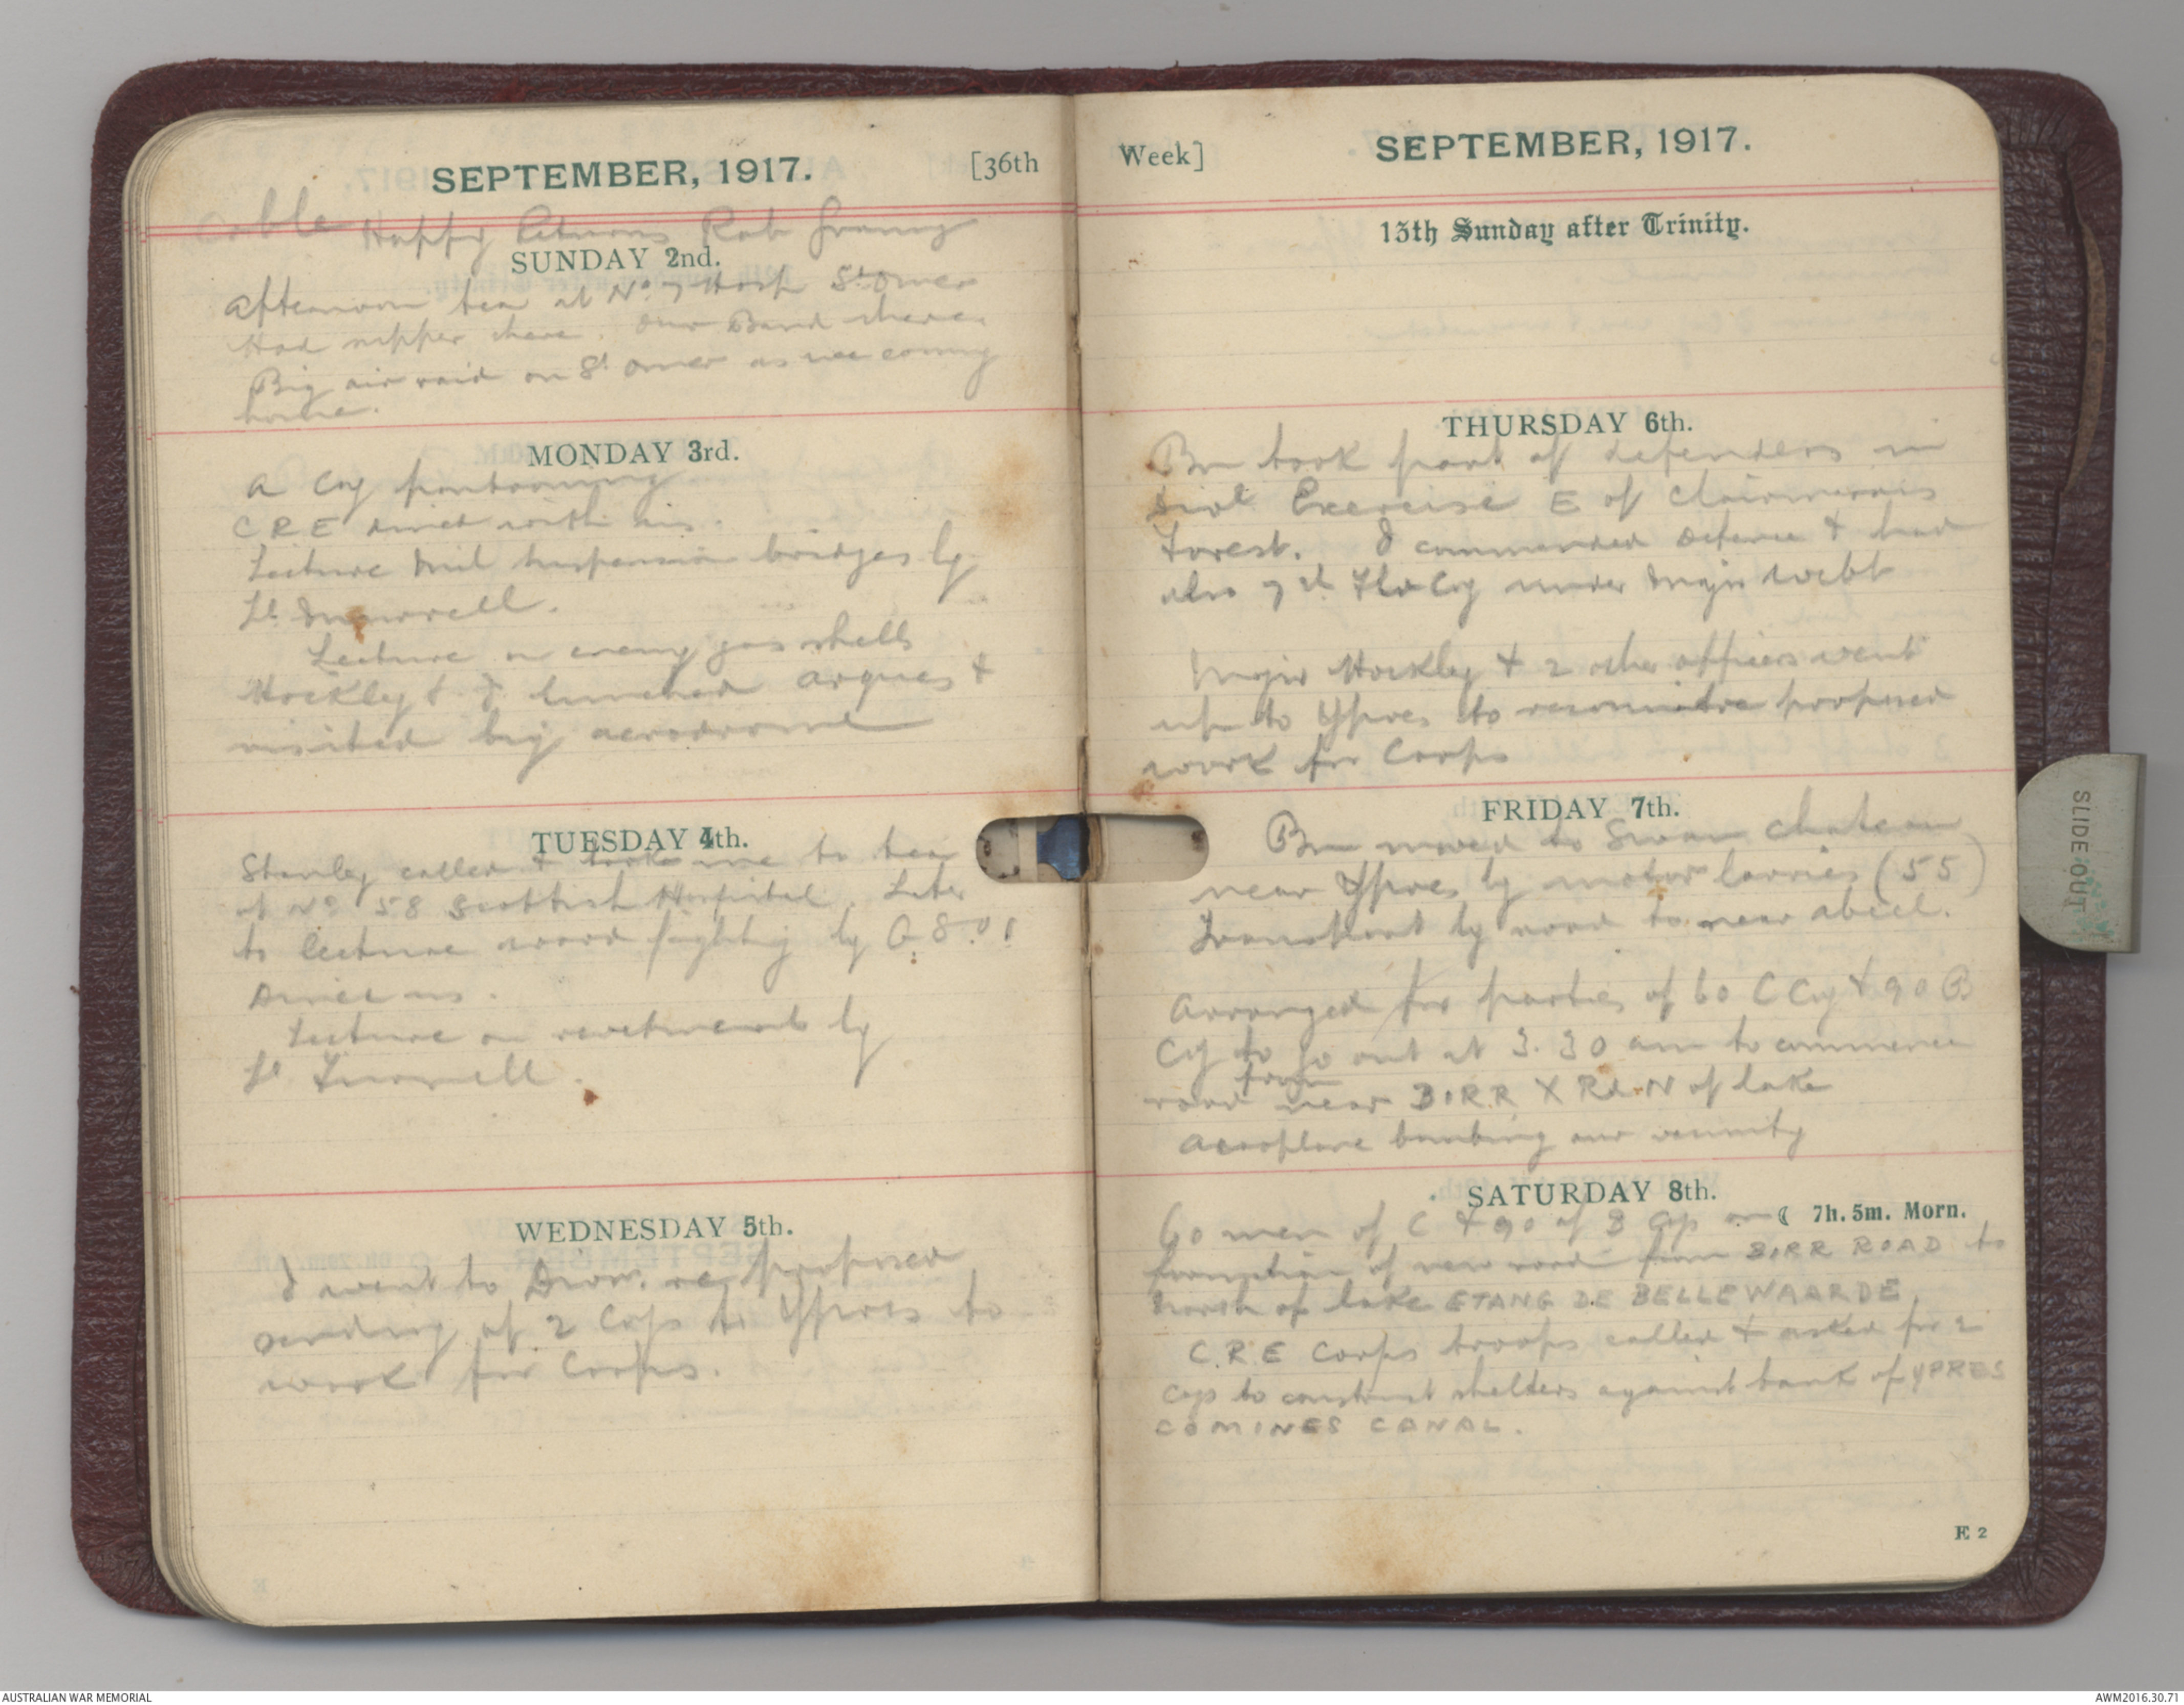 SEPTEMBER, 1917. [36th
Cable Happy Returns Rob Granny
SUNDAY 2nd.
Afternoon tea at No 7 Hosp St Omer
Had supper there. Our Band there.
Big air raid on St Omer as we coming
home.
MONDAY 3rd.
A Coy pontooning
C R E dined with us.
Lecture Mil suspension bridges by
Lt
Lecture on enemy gas shells
Hockley & I lunched Arques &
visited big aerodrome
TUESDAY 4th.
Stanley called & took me to tea
at No 58 Scottish Hospital. Later
to lecture wood fighting by G.S.O.1
Dined us.
Lecture on revetments by
Lt
WEDNESDAY 5th.
I went to Divn. re proposed
sending of 2 Coys to Ypres to
work for Corps.
Week] SEPTEMBER, 1917.
13th Sunday after Trinity.
THURSDAY 6th.
Bn took part of defenders in
Divl Exercise E of Clairmarais
Forest. I commanded defence & had
also 7th Fld Coy under Major Webb
Major Hockley & 2 other officers went
up to Ypres to reconnoitre proposed
work for Corps
FRIDAY 7th.
Bn moved to Swan Chateau
near Ypres by motor lorries (55)
Transport by road to near Abeel.
Arranged for parties of 60 C Coy & 90 B
Coy to go out at 3.30 am to commence
road from near BIRR X Rds N of lake
Aeroplane bombing our vicinity
SATURDAY 8th.
☾ 7h. 5m. Morn.
60 men of C & 90 of B Coy on
formation of new road from BIRR ROAD to
North of lake ETANG DE BELLEWAARDE.
C.R.E Corps troops called & asked for 2
Coys to construct shelters against bank of YPRES
COMINES CANAL.
E 2
SLIDE OUT
AUSTRALIAN WAR MEMORIAL
AWM2016.30.71